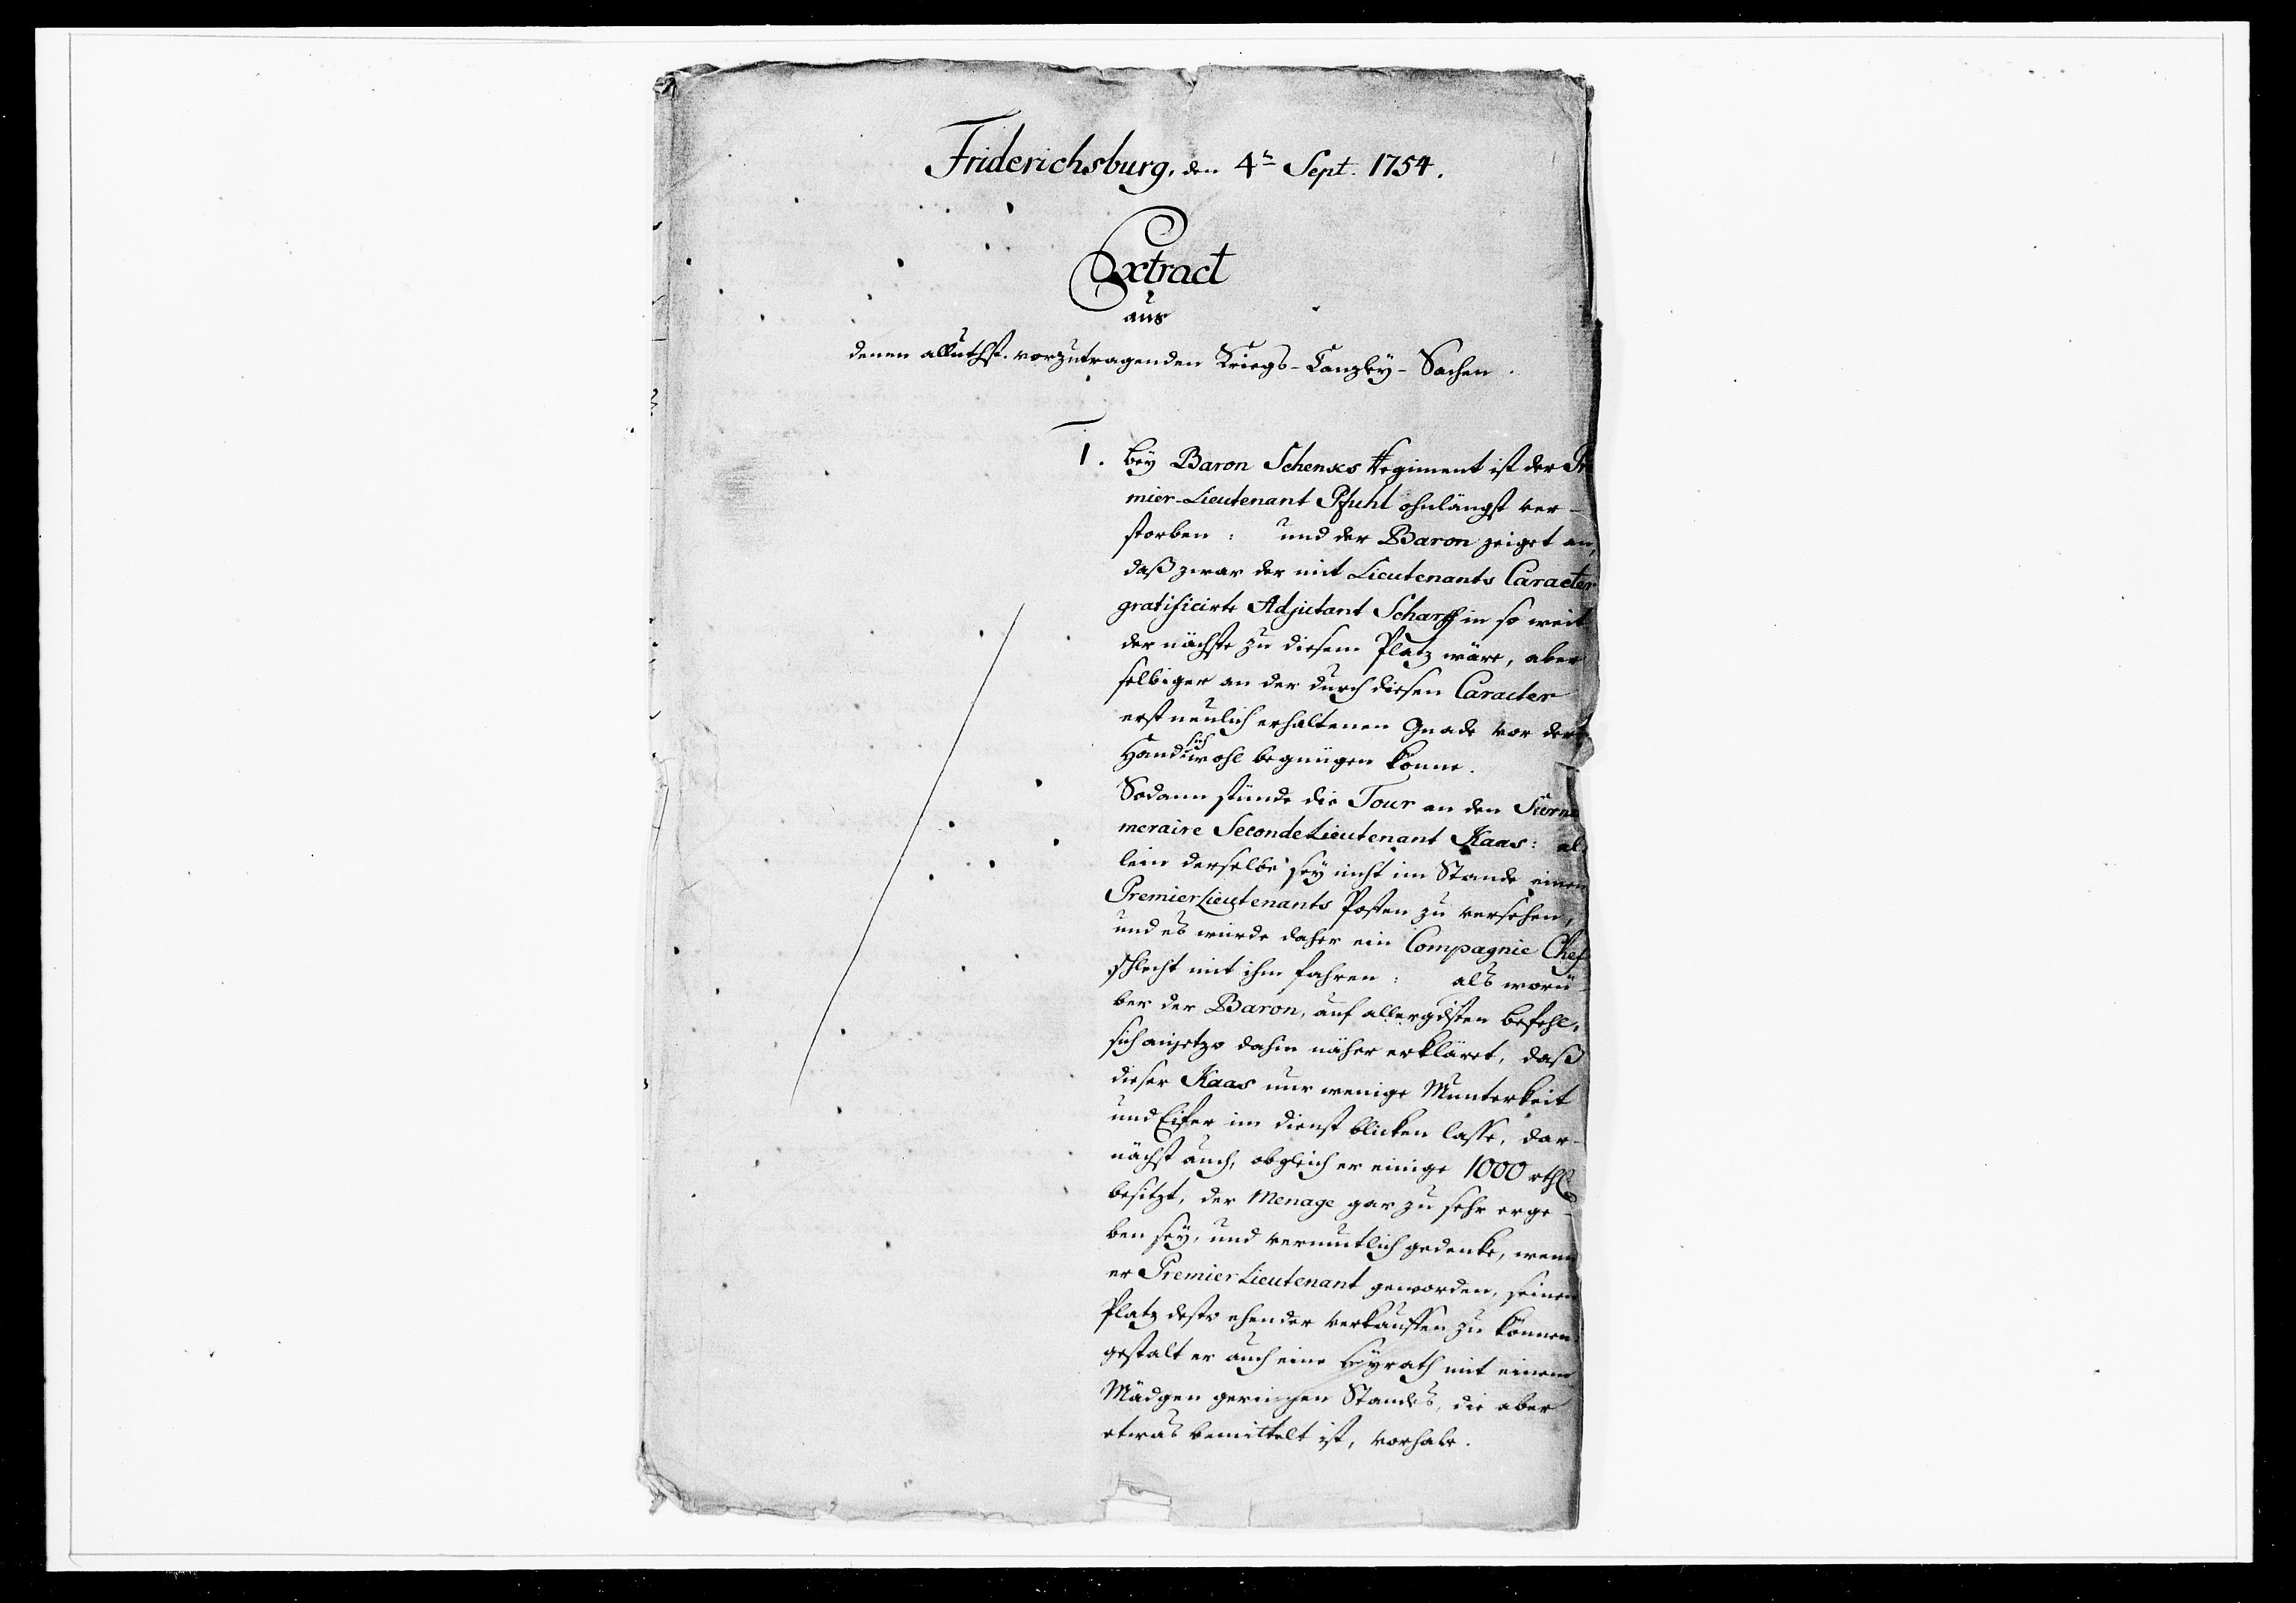 Friderichsburg, den 4ͭ Sept. 1754.
Extract
aus
denen allunthst. vorzutragenden Kriegs-Canzley-Sachen.
1. bey Baron Schencks Regiment ist der Pre
mier-Lieutenant Pfuhl ohnlängst ver-
storben: und der Baron zeiget an,
daß zwar der mit Lieutenants Caracter
gratificirte Adjutant Scharff in so weit
der nächste zu diesem Platz wäre, aber
selbiger an der durch diesen Caracter
erst neulich erhaltenen Gnade vor der
Hand sich wohl begnügen könne.
Sodann stünde die Tour an den Surnu
meraire Seconde Lieutenant Kaas: al-
lein derselbe sey nicht im Stande einen
Premier Lieutenants Posten zu versehen,
und es würde daher ein Compagnie Chef
schlecht mit ihm fahren: als worü-
ber der Baron, auf allergdsten Befehl,
sich anjetzo dahin näher erkläret, daß
dieser Kaas nur wenige Munterkeit
und Eifer im Dienst blicken lasse, dar-
nächst auch, obgleich er einige 1000 rthl.
besitzt, der Menage gar zu sehr erge-
ben sey, und vermutlich gedenke, wenn
er Premier Lieutenant geworden, seinen
Platz desto ehender verkauffen zu können
gestalt er auch eine Heyrath mit einem
Mädgen geringen Standes, die aber
etwas bemittelt ist, vorhabe.